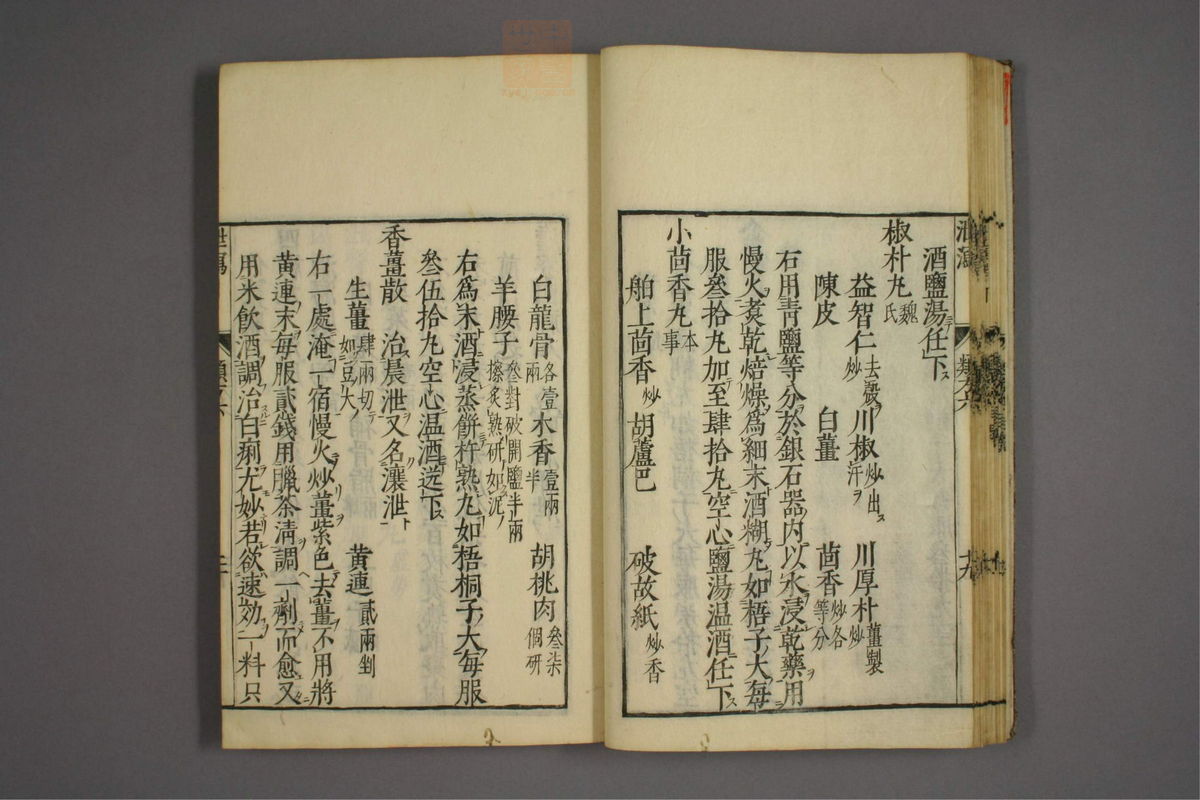 酒鹽湯任下ス
椒朴丸魏氏
益智仁去殼炒川椒炒出汗川厚朴薑製炒
陳皮　白薑　茴香炒各等分
右用青鹽等分於銀石器內以水浸乾藥用
慢火煑乾焙燥爲細末酒糊丸如梧子大每
服叄拾丸加至肆拾丸空心鹽湯温酒任下ス
小茴香丸本事
舶上茴香炒　胡蘆巴　破故紙炒香
白龍骨各壹兩木香壹兩半　胡桃肉叄柒個研
羊腰子叄對破開鹽半兩擦炙熟研如泥
右爲末酒浸蒸餅杵熟丸如梧桐子大每服
叄伍拾丸空心温酒送下ス
香薑散　治晨泄又名瀼泄
生薑肆兩切如豆大　黃連貳兩剉
右一處淹一宿慢火炒薑紫色去薑不用將
黃連末每服貳錢用臘茶清調一劑而愈又
用米飲酒調治白痢尤妙若欲速効一料只